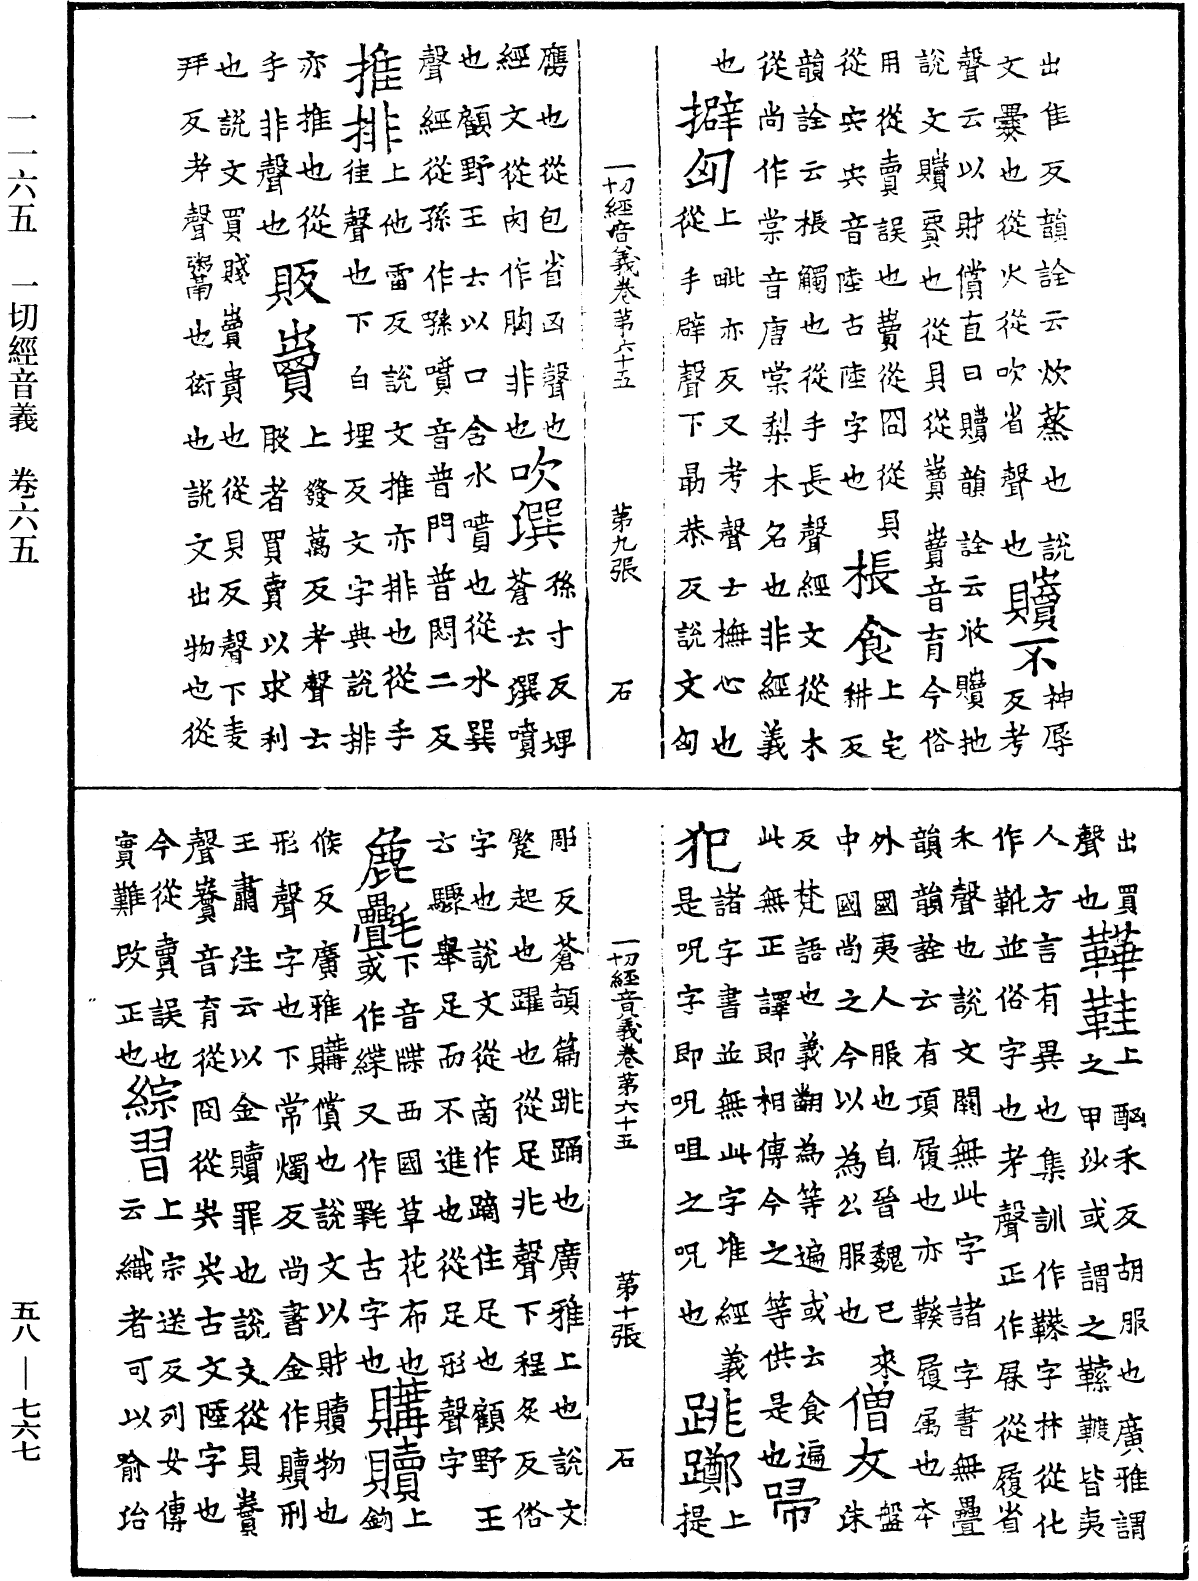 出隹反韻詮云炊蒸也說
文爨也從火從吹省聲也
贖不
神辱
反考
聲云以財償直曰贖韻詮云收贖地
說文贖貿也從貝從𧶠𧶠音育今俗
用從賣誤也𧶠從囧從貝
從音陸古陸字也
棖食
上宅
耕反
韻詮云棖觸也從手長聲經文從木
從尚作棠音唐棠梨木名也非經義
也
擗匈
上毗亦反又考聲云撫心也
從手辟聲下勗恭反說文匈
一切經音義卷第六十五 第九張 石
膺也從包省凶聲也
經文從肉作胸非也
吹潠
孫寸反埤
蒼云潠噴
也顧野王云以口含水噴也從水巽
聲經從孫作噴音普門普悶二反
推排
上他雷反說文推亦排也從手
隹聲也下白埋反文字典說排
亦推也從
手非聲也
販賣
上發萬反考聲云
販者買賣以求利
也說文買賤賣貴也從貝反聲下麦
拜反考聲粥也衒也說文出物也從
出買
聲也
鞾鞋
上禾反胡服也廣雅謂
之甲沙或謂之皆夷
人方言有異也集訓作字林從化
作靴並俗字也考聲正作從履省
禾聲也說文闕無此字諸字書無疊
韻韻詮云有項履也亦履属也本
外國夷人服也自晉魏已來
中國尚之今以為公服也
僧友
盤
珠
反梵語也義翻為等遍或云食遍
此無正譯即相傳今之等供是也
犯
諸字書並無此字准經義
是呪字即呪咀之呪也
跳躑
上
提
一切經音義卷第六十五 第十張 石
彫反蒼頡篇跳踊也廣雅上也說文
蹵起也躍也從足非聲下程炙反俗
字也說文從啇作蹢住足也顧野王
云驟舉足而不進也從足形聲字
麁㲲
下音牒西國草花布也
或作緤又作古字也
購贖
上
鉤
候反廣雅購償也說文以財贖物也
形聲字也下常燭反尚書金作贖刑
王肅注云以金贖罪也說文從貝𧶠
聲𧶠音育從囧從古文陸字也
今從賣誤也
實難改正也
綜習
上宗送反列女傳
云織者可以喻治
一一六五 一切經音義 卷六五
五八—七六七